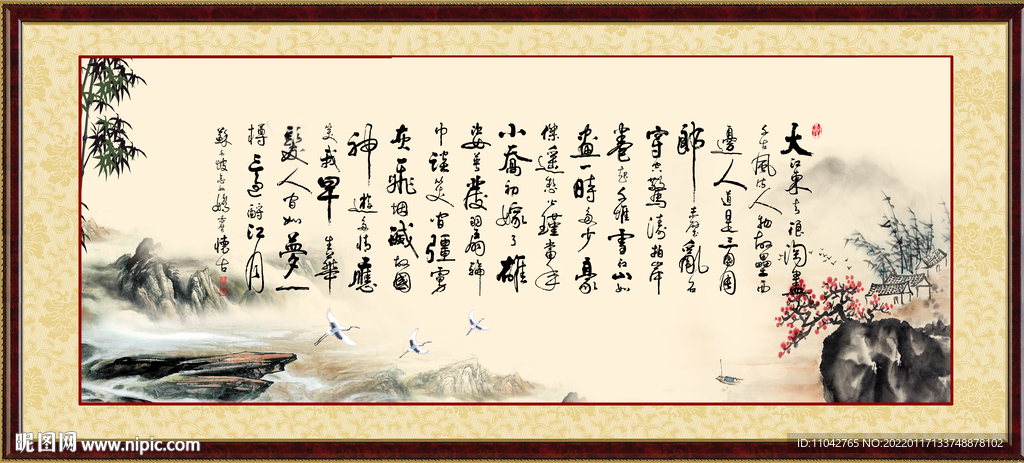 大江東去浪淘盡
千古風流人物故壘西
邊人道是三國周
郎赤壁亂石
穿空驚濤拍岸
卷起千堆雪江山如
畫一時多少豪
傑遙想公瑾當年
小喬初嫁了雄
姿英發羽扇綸
巾談笑間強虜
灰飛烟滅故國
神遊多情應
笑我早生華
髮人間如夢一
樽還酹江月
蘇東坡念奴嬌赤壁懷古
昵图网 www.nipic.com
ID:11042765 NO:20220117133748878102